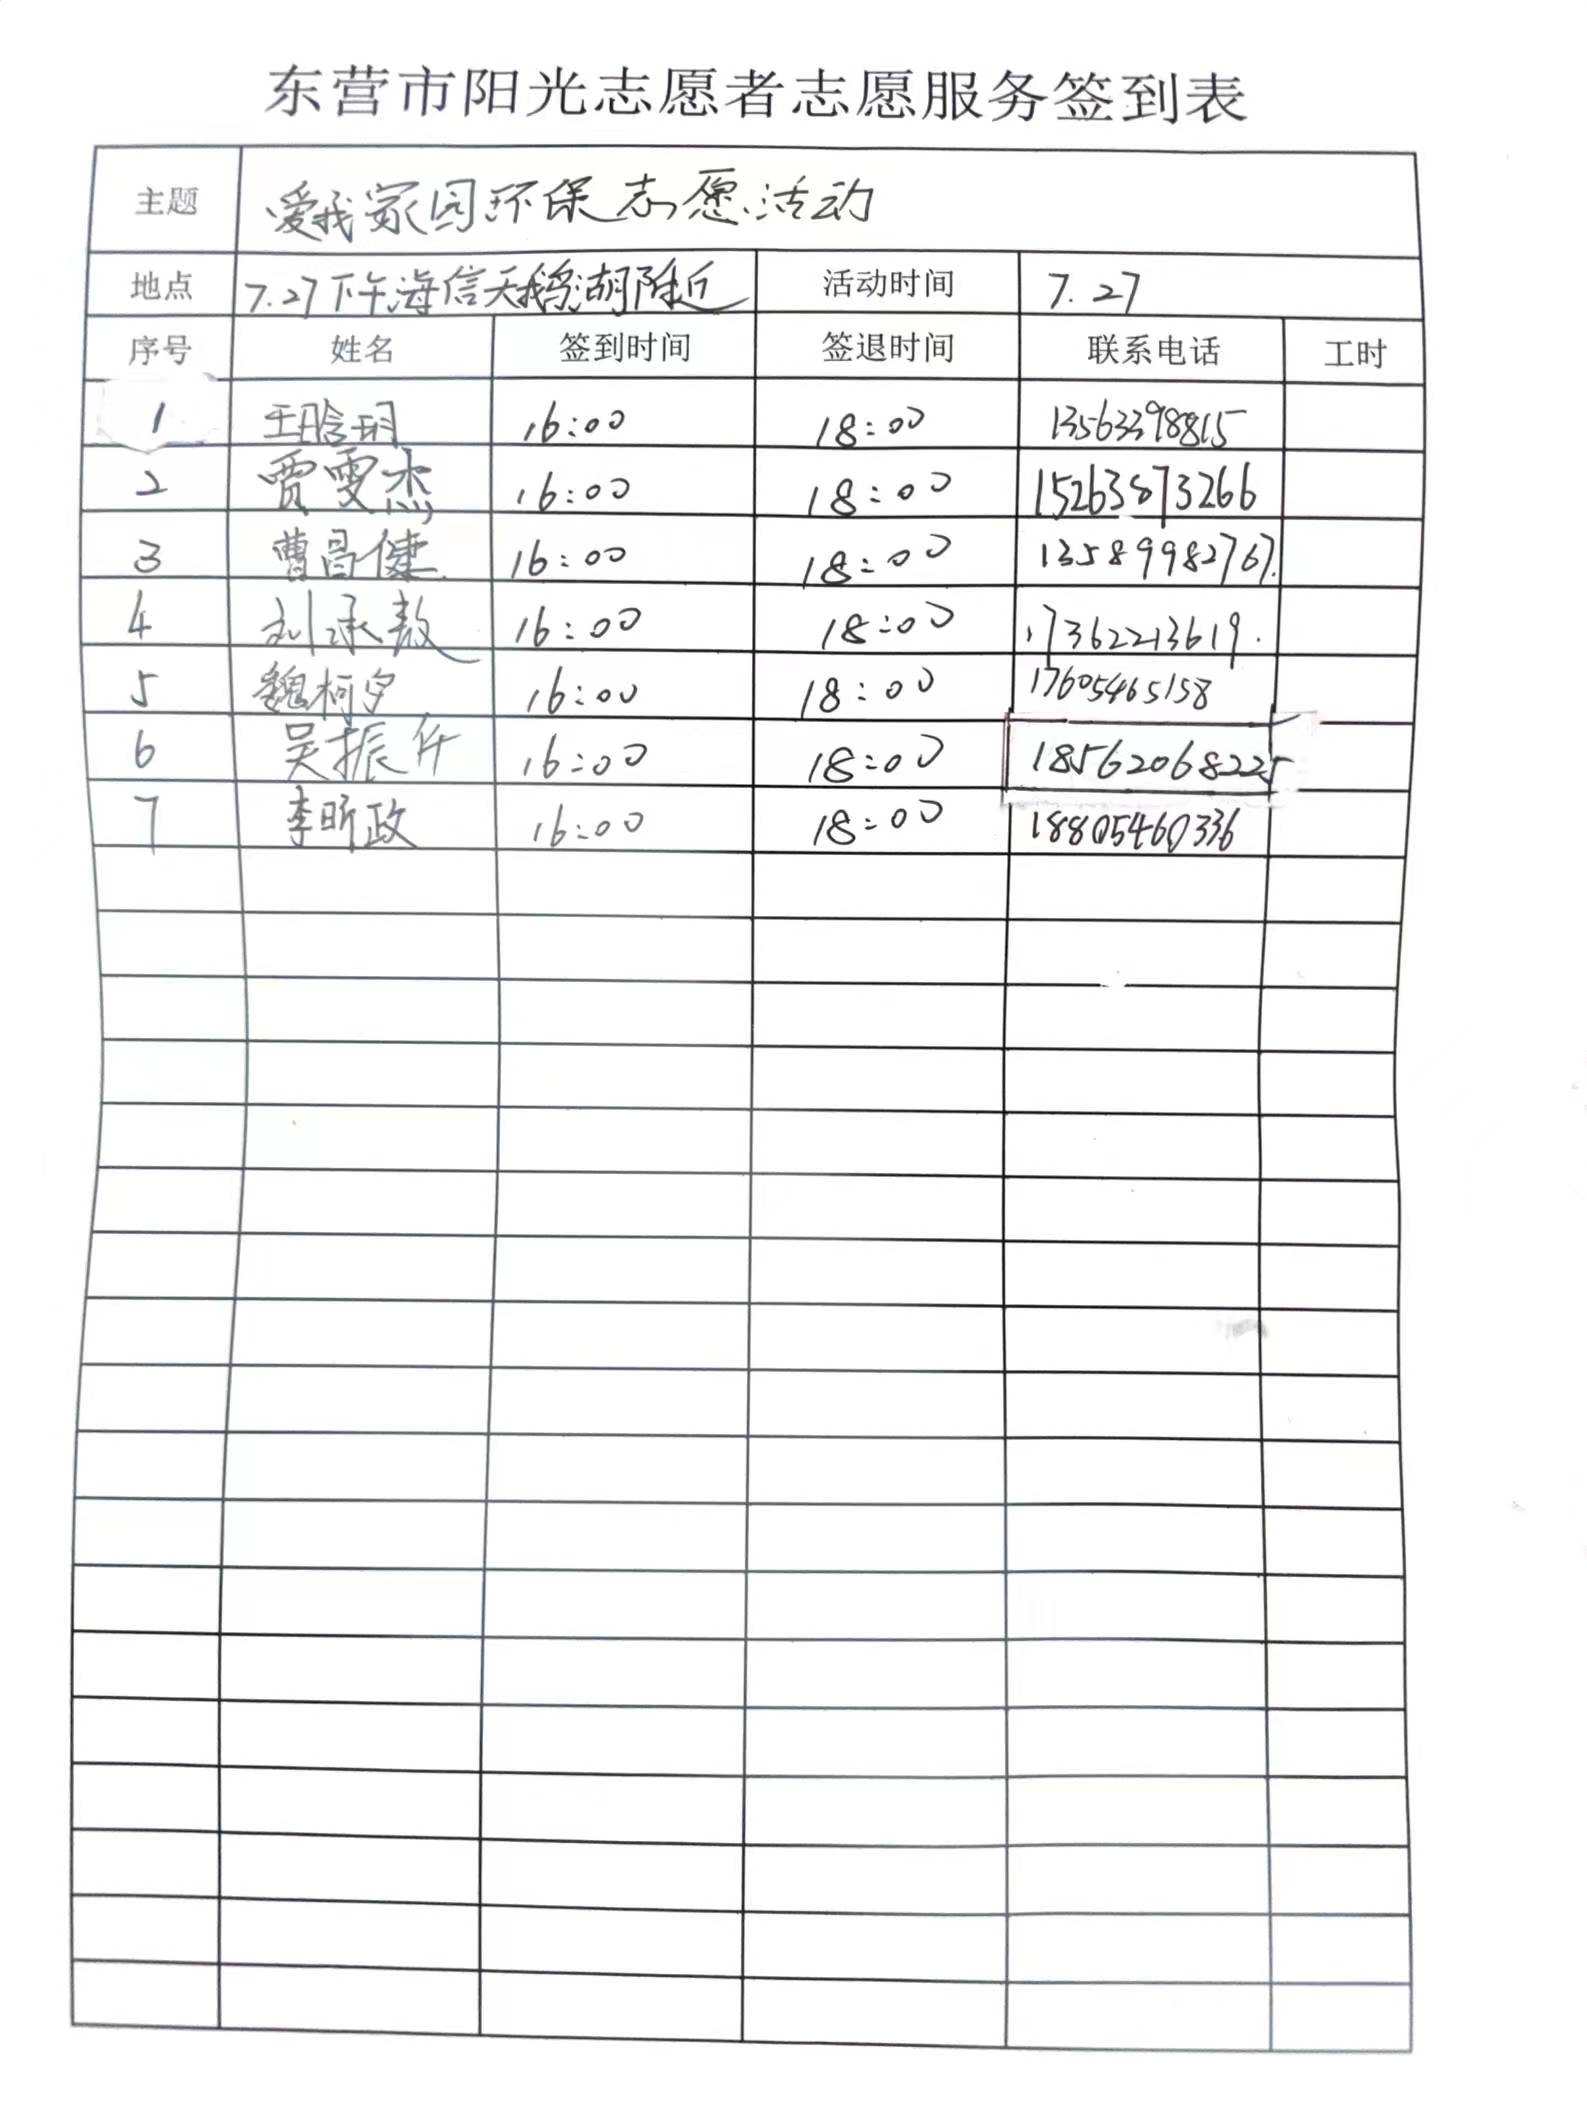 东营市阳光志愿者志愿服务签到表
主题 爱我家园环保志愿活动
地点 7.27下午海信天鹅湖附近 活动时间 7.27
序号 姓名 签到时间 签退时间 联系电话 工时
1 王晗玥 16:00 18:00 13563398815
2 贾雯杰 16:00 18:00 15263873266
3 曹昌健 16:00 18:00 13589982767.
4 刘承敖 16:00 18:00 17362213619.
5 魏柯夕 16:00 18:00 17605465158
6 吴振 16:00 18:00 18562068225
7 李昕政 16:00 18:00 18805460336